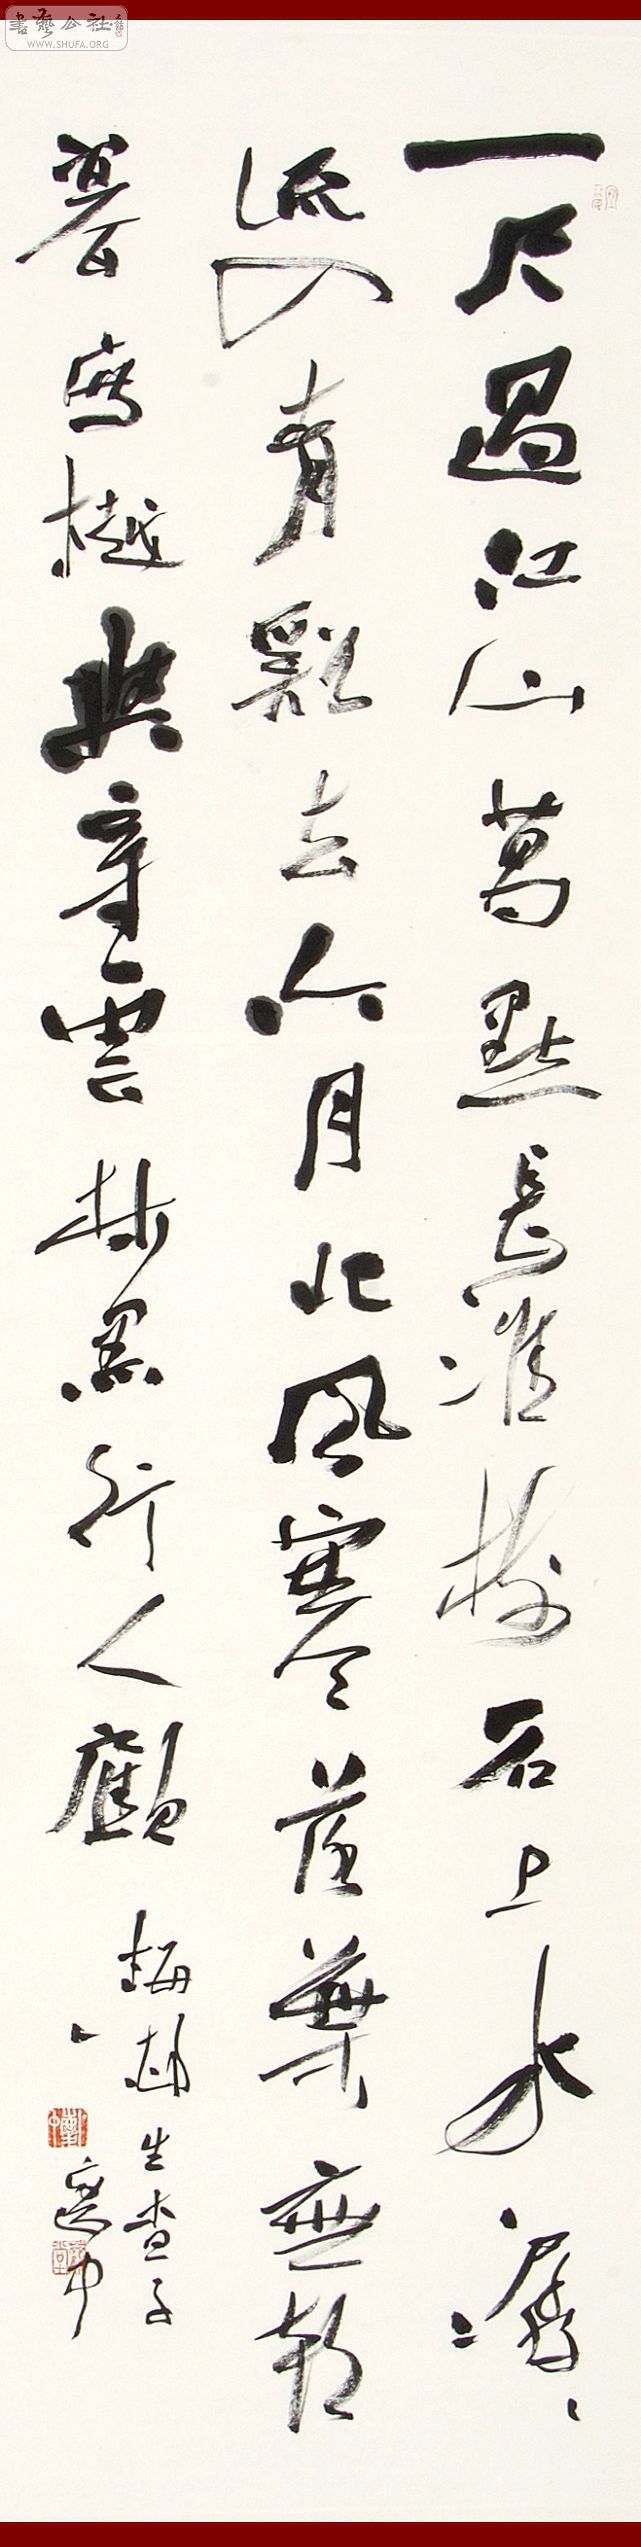 書藝公社
WWW.SHUFA.ORG
一尺過江山萬點長淮樹石上水潺潺
流入青谿去六月北風寒落葉無朝
暮度樾與穿雲林黑行人顧
梅邨生查子
中